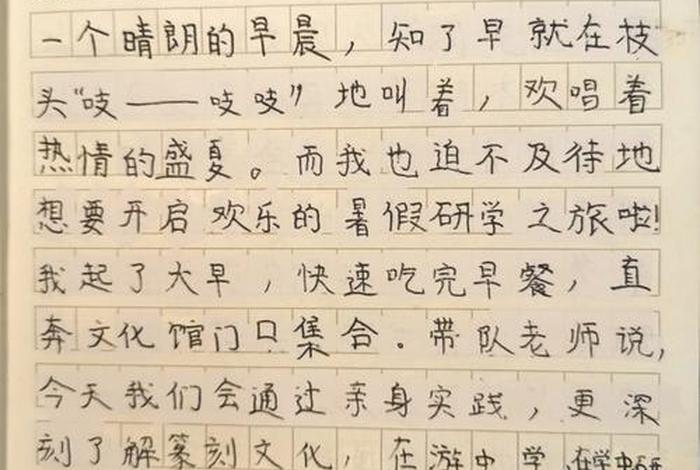 一个晴朗的早晨，知了早就在枝
头“吱——吱吱”地叫着，欢唱着
热情的盛夏。而我也迫不及待地
想要开启欢乐的暑假研学之旅啦!
我起了大早，快速吃完早餐，直
奔文化馆门口集合。带队老师说，
今天我们会通过亲身实践，更深
刻了解篆刻文化，在游中学，在学中研